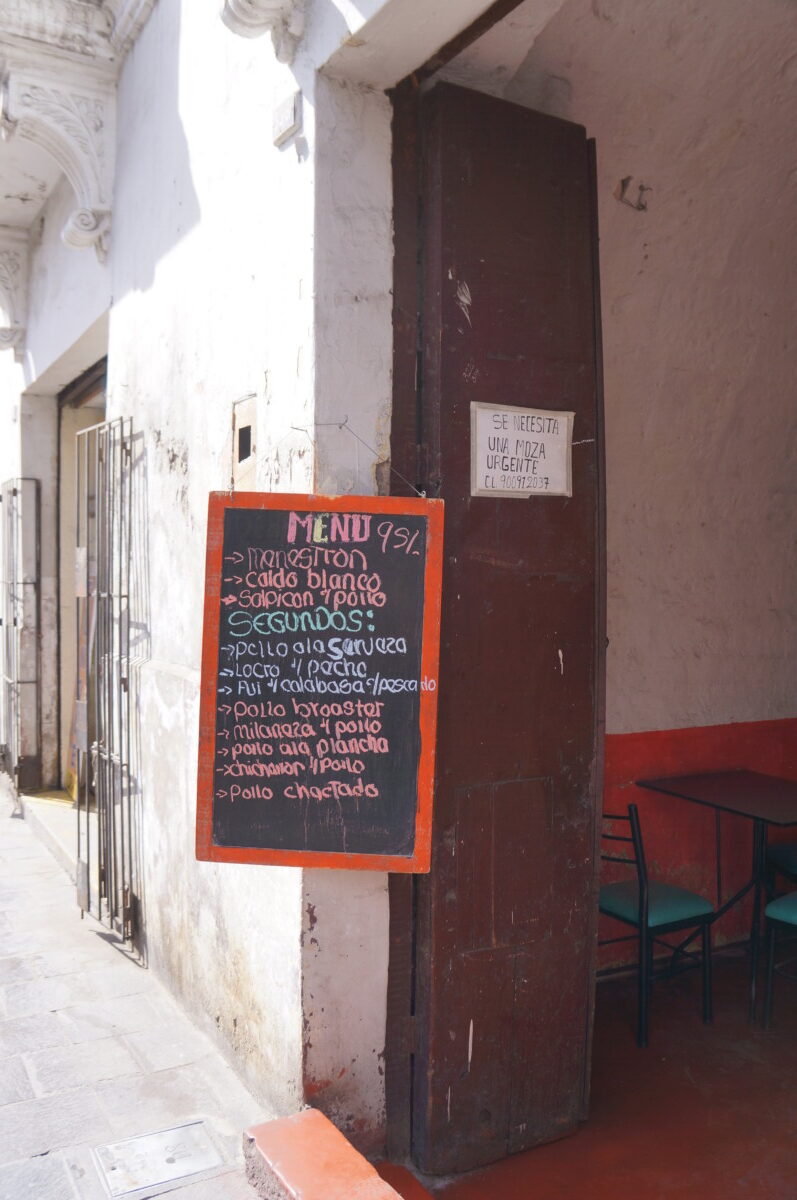 MENU 9S/.
→ Menestron
→ caldo blanco
→ Salpicon c/pollo
SEGUNDOS:
→ pollo ala Serveza
→ Locro c/ pecho
→ Fui c/ calabasa c/pescado
→ pollo broaster
→ milaneza c/ pollo
→ pollo ala plancha
→ chicharon c/ Pollo
→ Pollo chactado
SE NECESITA
UNA MOZA
URGENTE
CL. 900912037